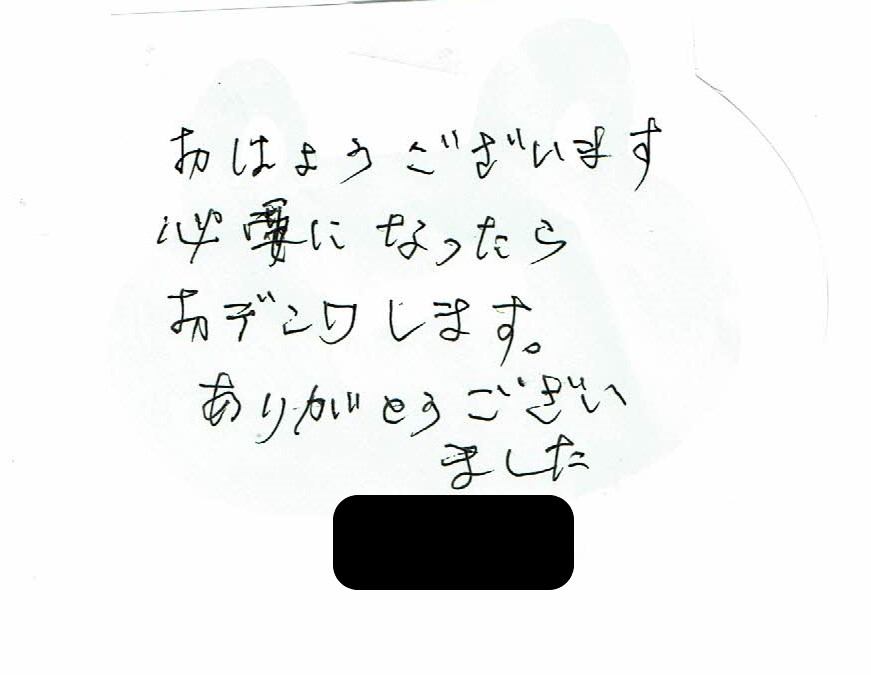 おはようございます
必要になったら
おデンワします。
ありがとうござい
ました